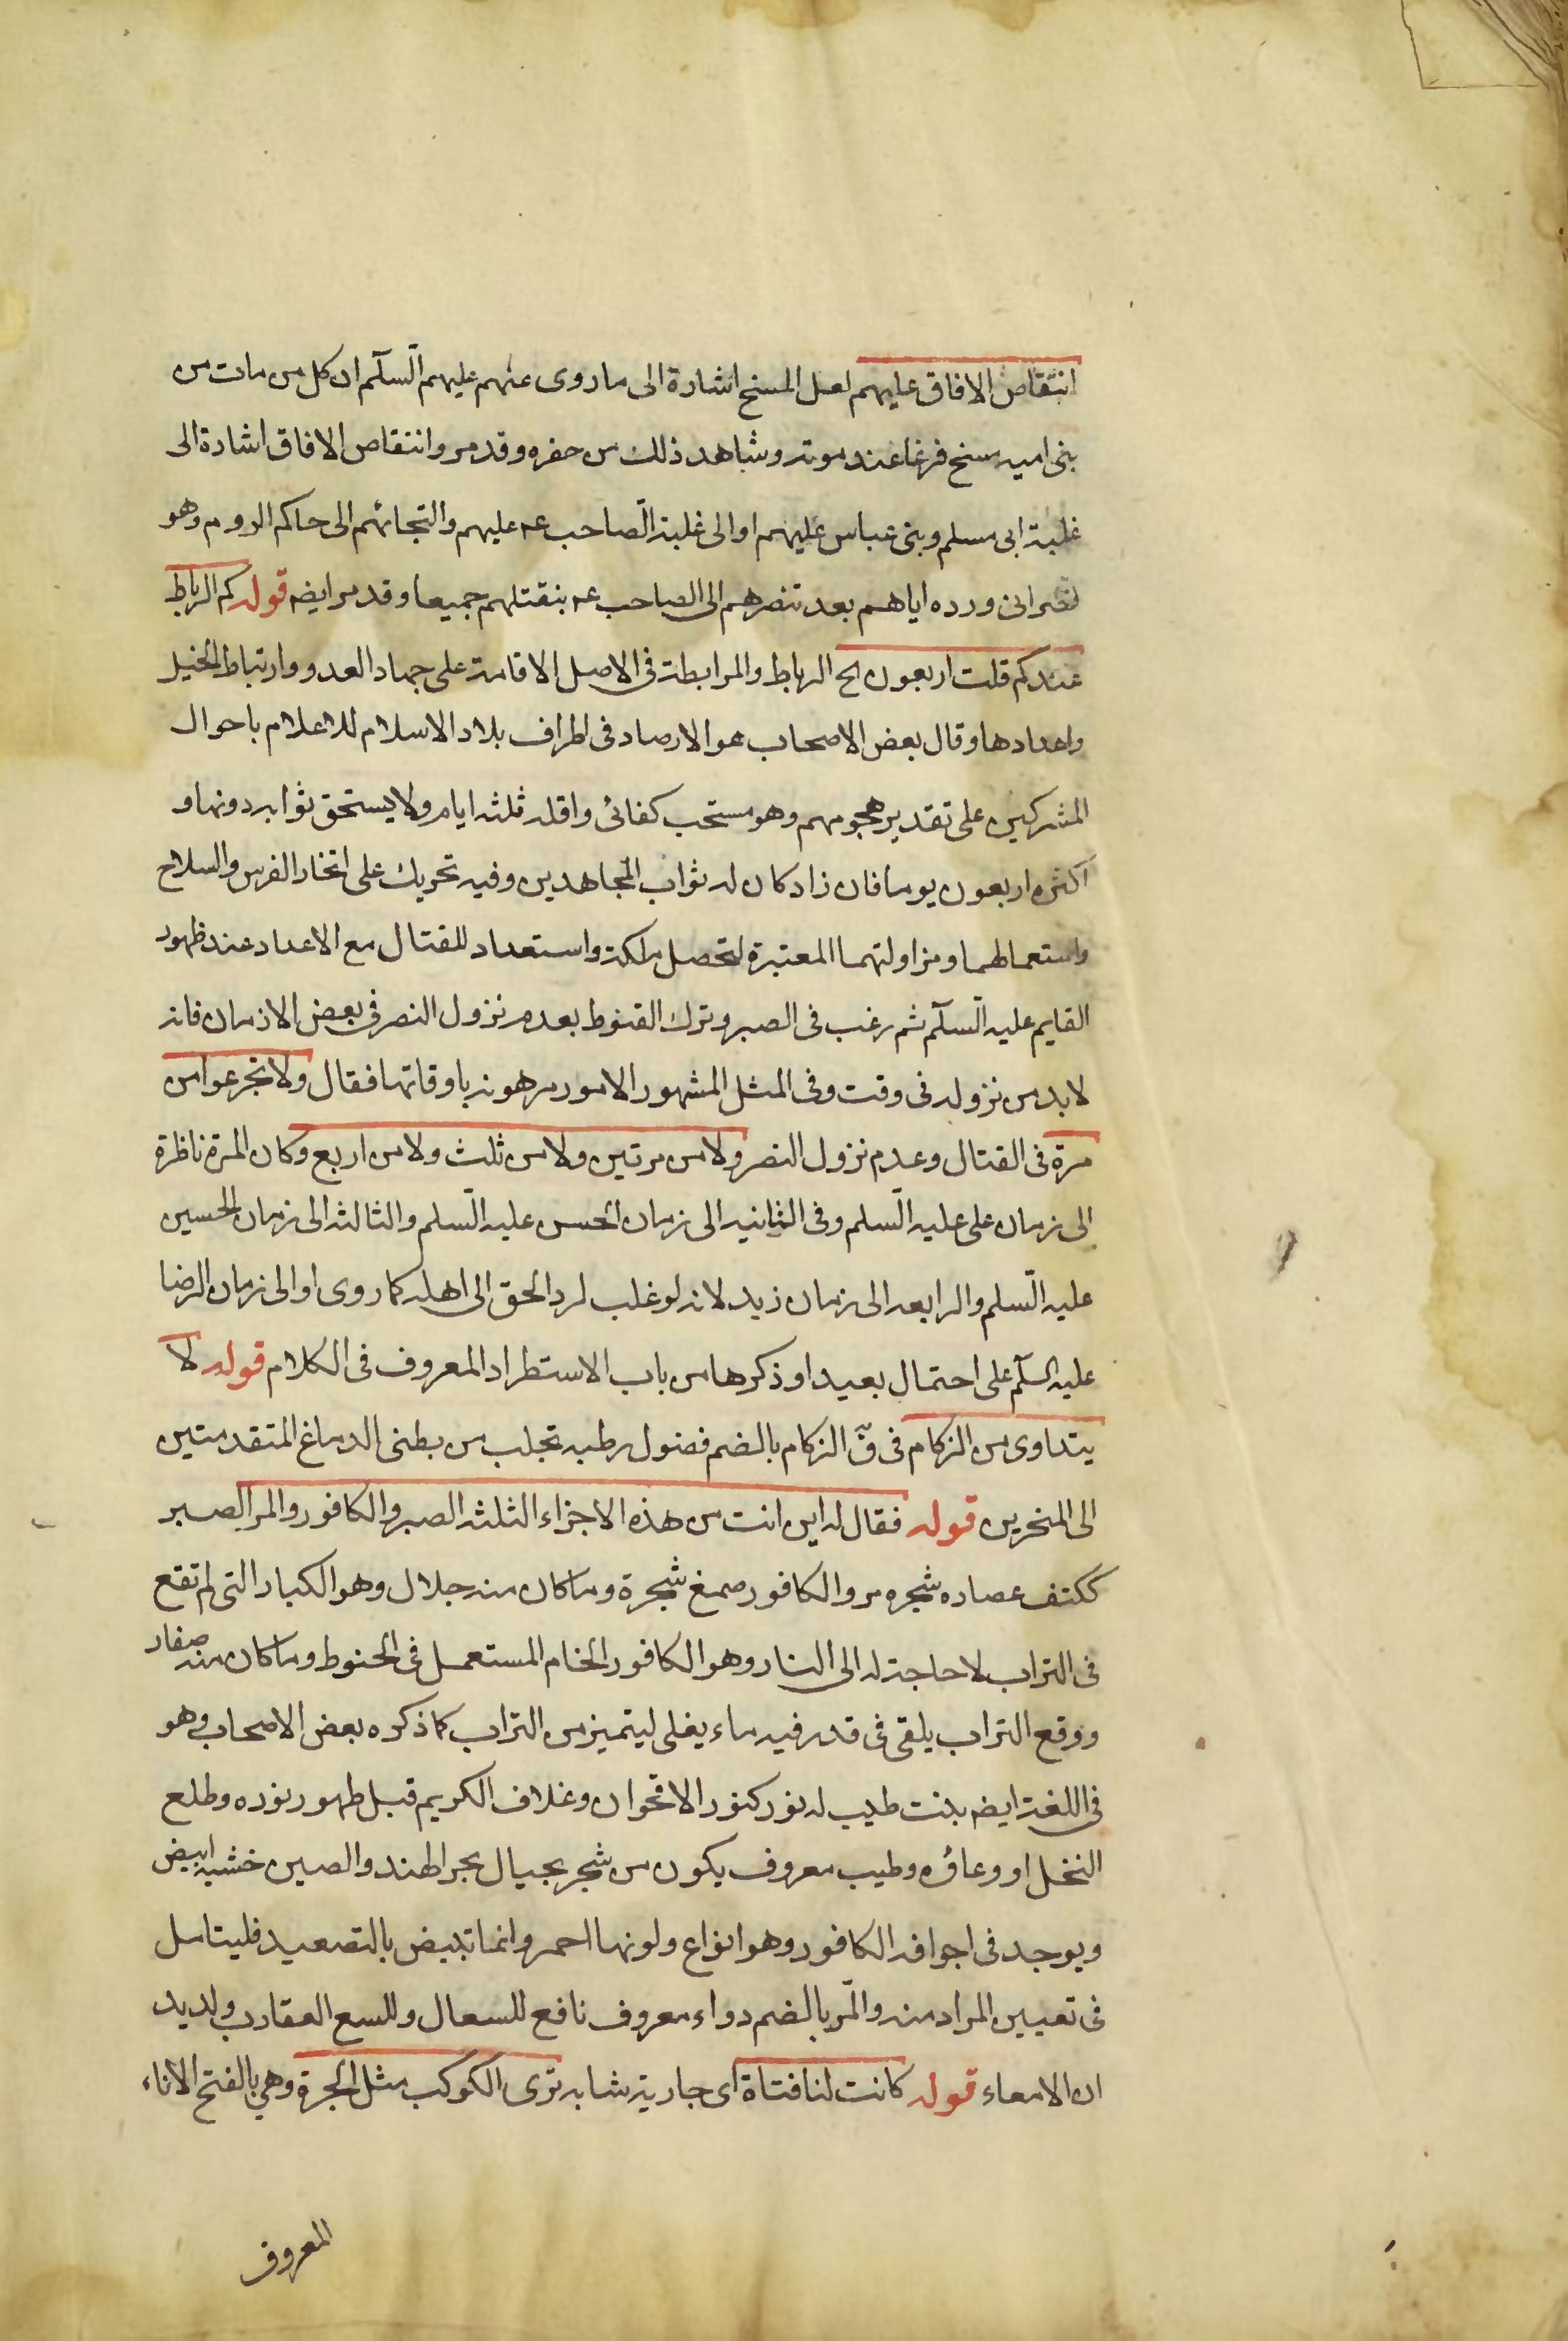 انتقاض الافاق عليهم لعل المسخ اشارة الى ما روى عنهم عليهم السلام ان كل من مات من
بنى اميه مسخ فرغا عند موته وشاهد ذلك من حضره وقد مر وانتقاص الافاق اشارة الى
غلبة ابى مسلم وبنى عباس عليهم او الى غلبة الصاحب عه عليهم والتجائهم الى حاكم الروم وهو
نصرانى ورده اياهم بعد تنصرهم الى الصاحب عه بنقتلهم جميعا وقد مر ايضه قوله كم الرباط
عندكم قلت اربعون الخ الرباط والمرابطة فى الاصل الاقامة على جهاد العدو وارتباط الخيل
واعدادها وقال بعض الاصحاب هو الارصاد فى اطراف بلاد الاسلام للاعلام باحوال
المشركين على تقدير هجومهم وهو مستحب كفائى واقله ثلثه ايام ولا يستحق ثوابه بدونها و
اكثره اربعون يوما فان زاد كان له ثواب المجاهدين وفيه تحريك على اتخاذ الفرس والسلاح
واستعمالهما ومزاولتهما المعتبرة لتحصل ملكة واستعداد للقتال مع الاعداء عند ظهور
القايم عليه السلام ثم رغب فى الصبر وترك القنوط بعدم نزول النصر فى بعض الازمان فانه
لا بد من نزوله فى وقت وفى المثل المشهور الامور مرهونه باوقاتها فقال ولا تجزعوا من
مرة فى القتال وعدم نزول النصر ولا من مرتين ولا من ثلث ولا من اربع وكان المرة ناظرة
الى زمان على عليه السلم وفى الثانيه الى زمان الحسن عليه السلم والثالثه الى زمان الحسين
عليه السلم والرابعه الى زمان زيد لانه لو غلب لرد الحق الى اهله كما روى او الى زمان الرضا
عليه السلم على احتمال بعيد او ذكرها من باب الاستطراد المعروف فى الكلام قوله لا
يتداوى من الزكام فى ق الزكام بالضم فضول رطبه تجلب من بطنى الدماغ المتقدمتين
الى المنخرين قوله فقال له اين انت من هذه الاجزاء الثلثه الصبر والكافور والمر الصبر
ككتف عصاره شجره مر والكافور صمغ شجرة وما كان منه جلال وهو الكبار التى لم تقع
فى التراب لا حاجة له الى النار وهو الكافور الخام المستعمل فى الحنوط وما كان منه صغار
ووقع التراب يلقى فى قدر فيه ماء يغلى ليتميز من التراب كما ذكره بعض الاصحاب وهو
فى اللغة ايضه بنت طيب له نور كنور الاقحوان وغلاف الكريم قبل ظهور نوره وطلع
النخل او وعاؤه وطيب معروف يكون من شجر بجيال بحر الهند والصين خشبه ابيض
ويوجد فى اجوافه الكافور وهو انواع ولونها احمر وانما تبيض بالتصعيد فليتامل
فى تعيين المراد منه والمر بالضم دواء معروف نافع للسعال وللسع العقارب ولديد
ان الامعاء قوله كانت لنا فتاة اى جارية شابه ترى الكوكب مثل الجرة وهي بالفتح الاناء
المعروف